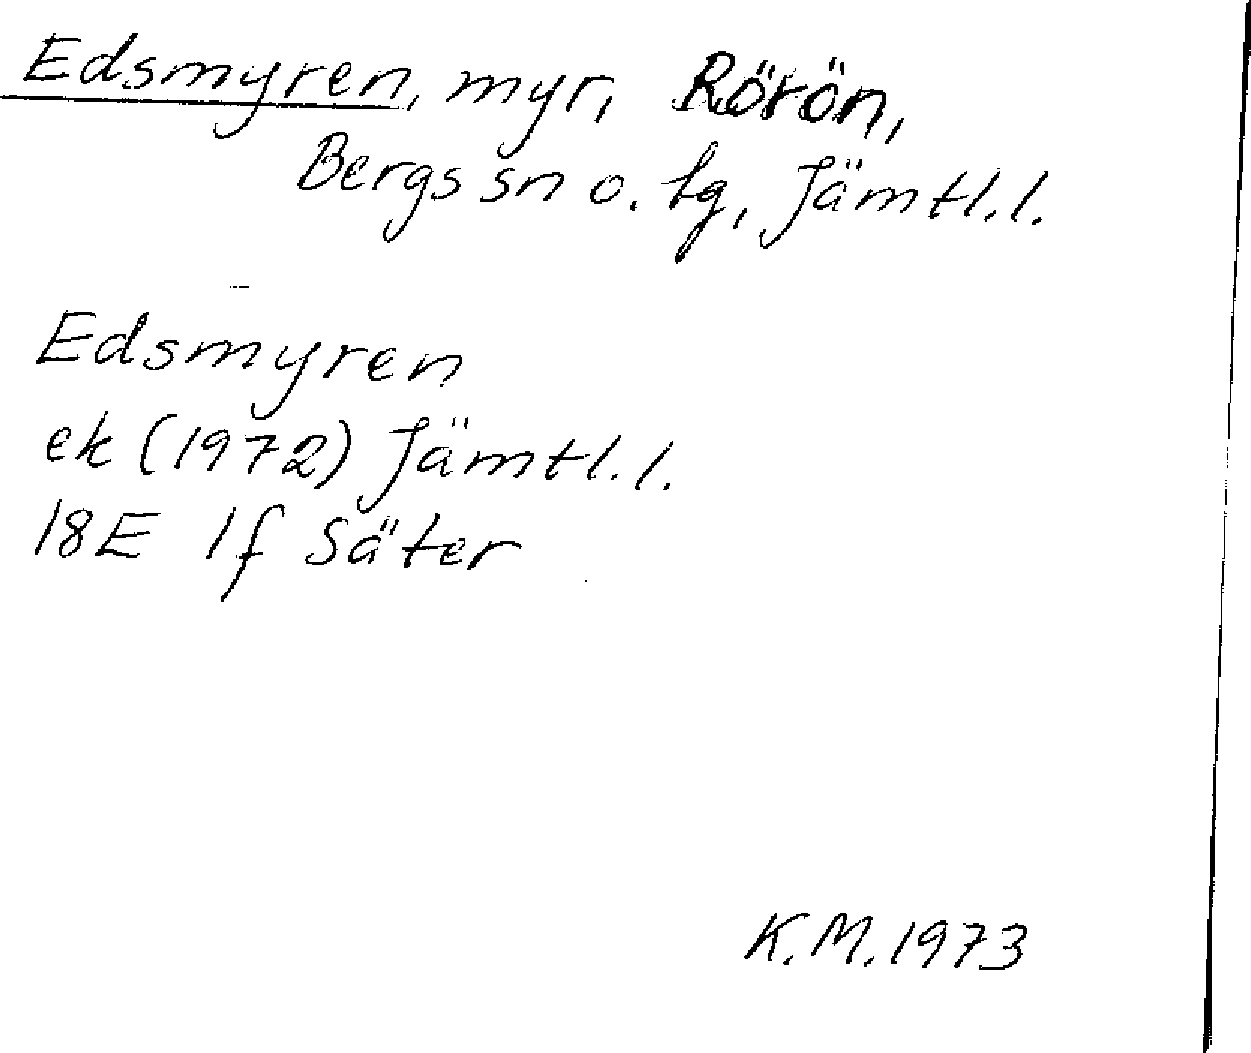 Edsmyren, myr, Rörön,
Bergs sn o. tg, Jämtl.l.
Edsmyren
ek (1972) Jämtl.l.
18E 1f Säter
K.M. 1973